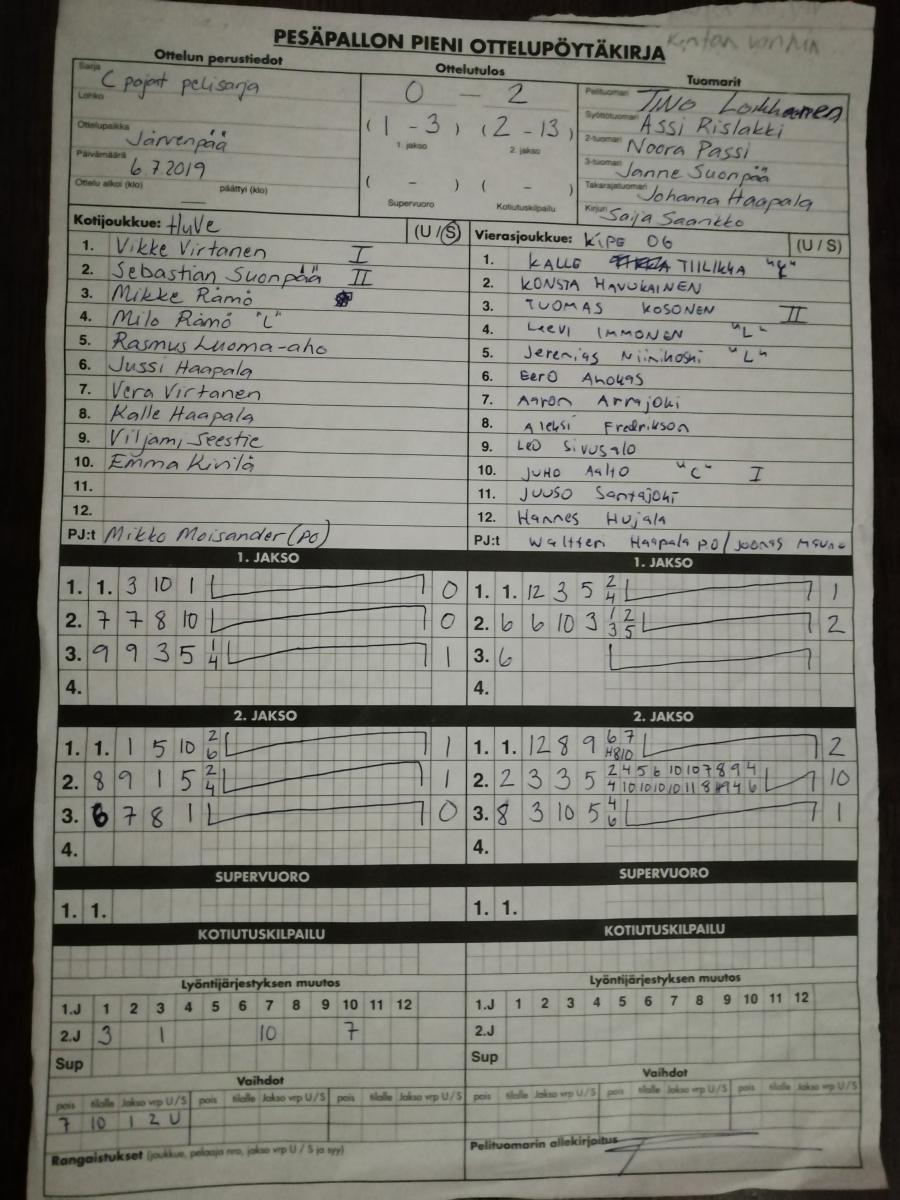 PESÄPALLON PIENI OTTELUPÖYTÄKIRJA
Ottelun perustiedot
Sarja C pojat pelisarja
Lohko
Ottelupaikka Järvenpää
Päivämäärä 6.7.2019
Ottelu alkoi (klo) päättyi (klo)
Ottelutulos
0 - 2
(1 - 3) (2 - 13)
1. jakso 2. jakso
( - ) ( - )
Supervuoro Kotiutuskilpailu
Tuomarit
Pelituomari TINO
Syöttötuomari Assi Rislakki
2-tuomari Noora Passi
3-tuomari Janne Suonpää
Takarajatuomari Johanna Haapala
Kirjuri Saija Saarikko
Kotijoukkue: HuVe (U / S)
1. Vikke Virtanen I
2. Sebastian Suonpää II
3. Mikke Rämö
4. Milo Rämö "L"
5. Rasmus Luoma-aho
6. Jussi Haapala
7. Vera Virtanen
8. Kalle Haapala
9. Viljami Seestie
10. Emma Kivilä
11.
12.
PJ:t Mikko Moisander (PO)
Vierasjoukkue: KiPe 06 (U / S)
1. KALLE TIILIKKA
2. KONSTA HAVUKAINEN
3. TUOMAS KOSONEN II
4. Leevi IMMONEN "L"
5. Jeremias Niinikoski "L"
6. Eero Ahokas
7. Aaron Arrajoki
8. Aleksi Fredrikson
9. Leo Sivusalo
10. Juho Aalto "C" I
11. Juuso Santajoki
12. Hannes Hujala
PJ:t Waltteri Haapala PO / Joonas
1. JAKSO
1. 1. 3 10 1 0
2. 7 7 8 10 0
3. 9 9 3 5 1 4 1
4.
1. JAKSO
1. 1. 12 3 5 2 4 1
2. 6 6 10 3 1 3 2 5 2
3. 6
4.
2. JAKSO
1. 1. 1 5 10 2 6 1
2. 8 9 1 5 2 4 1
3. 6 7 8 1 0
4.
2. JAKSO
1. 1. 12 8 9 6 7 2
2. 2 3 3 5 2 4 5 6 10 10 7 8 9 4 10
3. 8 3 10 5 4 6 1
4.
SUPERVUORO
1. 1.
SUPERVUORO
1. 1.
KOTIUTUSKILPAILU
KOTIUTUSKILPAILU
Lyöntijärjestyksen muutos
1.J 1 2 3 4 5 6 7 8 9 10 11 12
2.J 3 1 10 7
Sup
Lyöntijärjestyksen muutos
1.J 1 2 3 4 5 6 7 8 9 10 11 12
2.J
Sup
Vaihdot
pois tilalle Jakso vrp U/S pois tilalle Jakso vrp U/S pois tilalle Jakso vrp U/S
7 10 1 2 U
Rangaistukset (joukkue, pelaaja nro, jakso vrp U / S ja syy)
Vaihdot
pois tilalle Jakso vrp U/S pois tilalle Jakso vrp U/S pois tilalle Jakso vrp U/S
Pelituomarin allekirjoitus